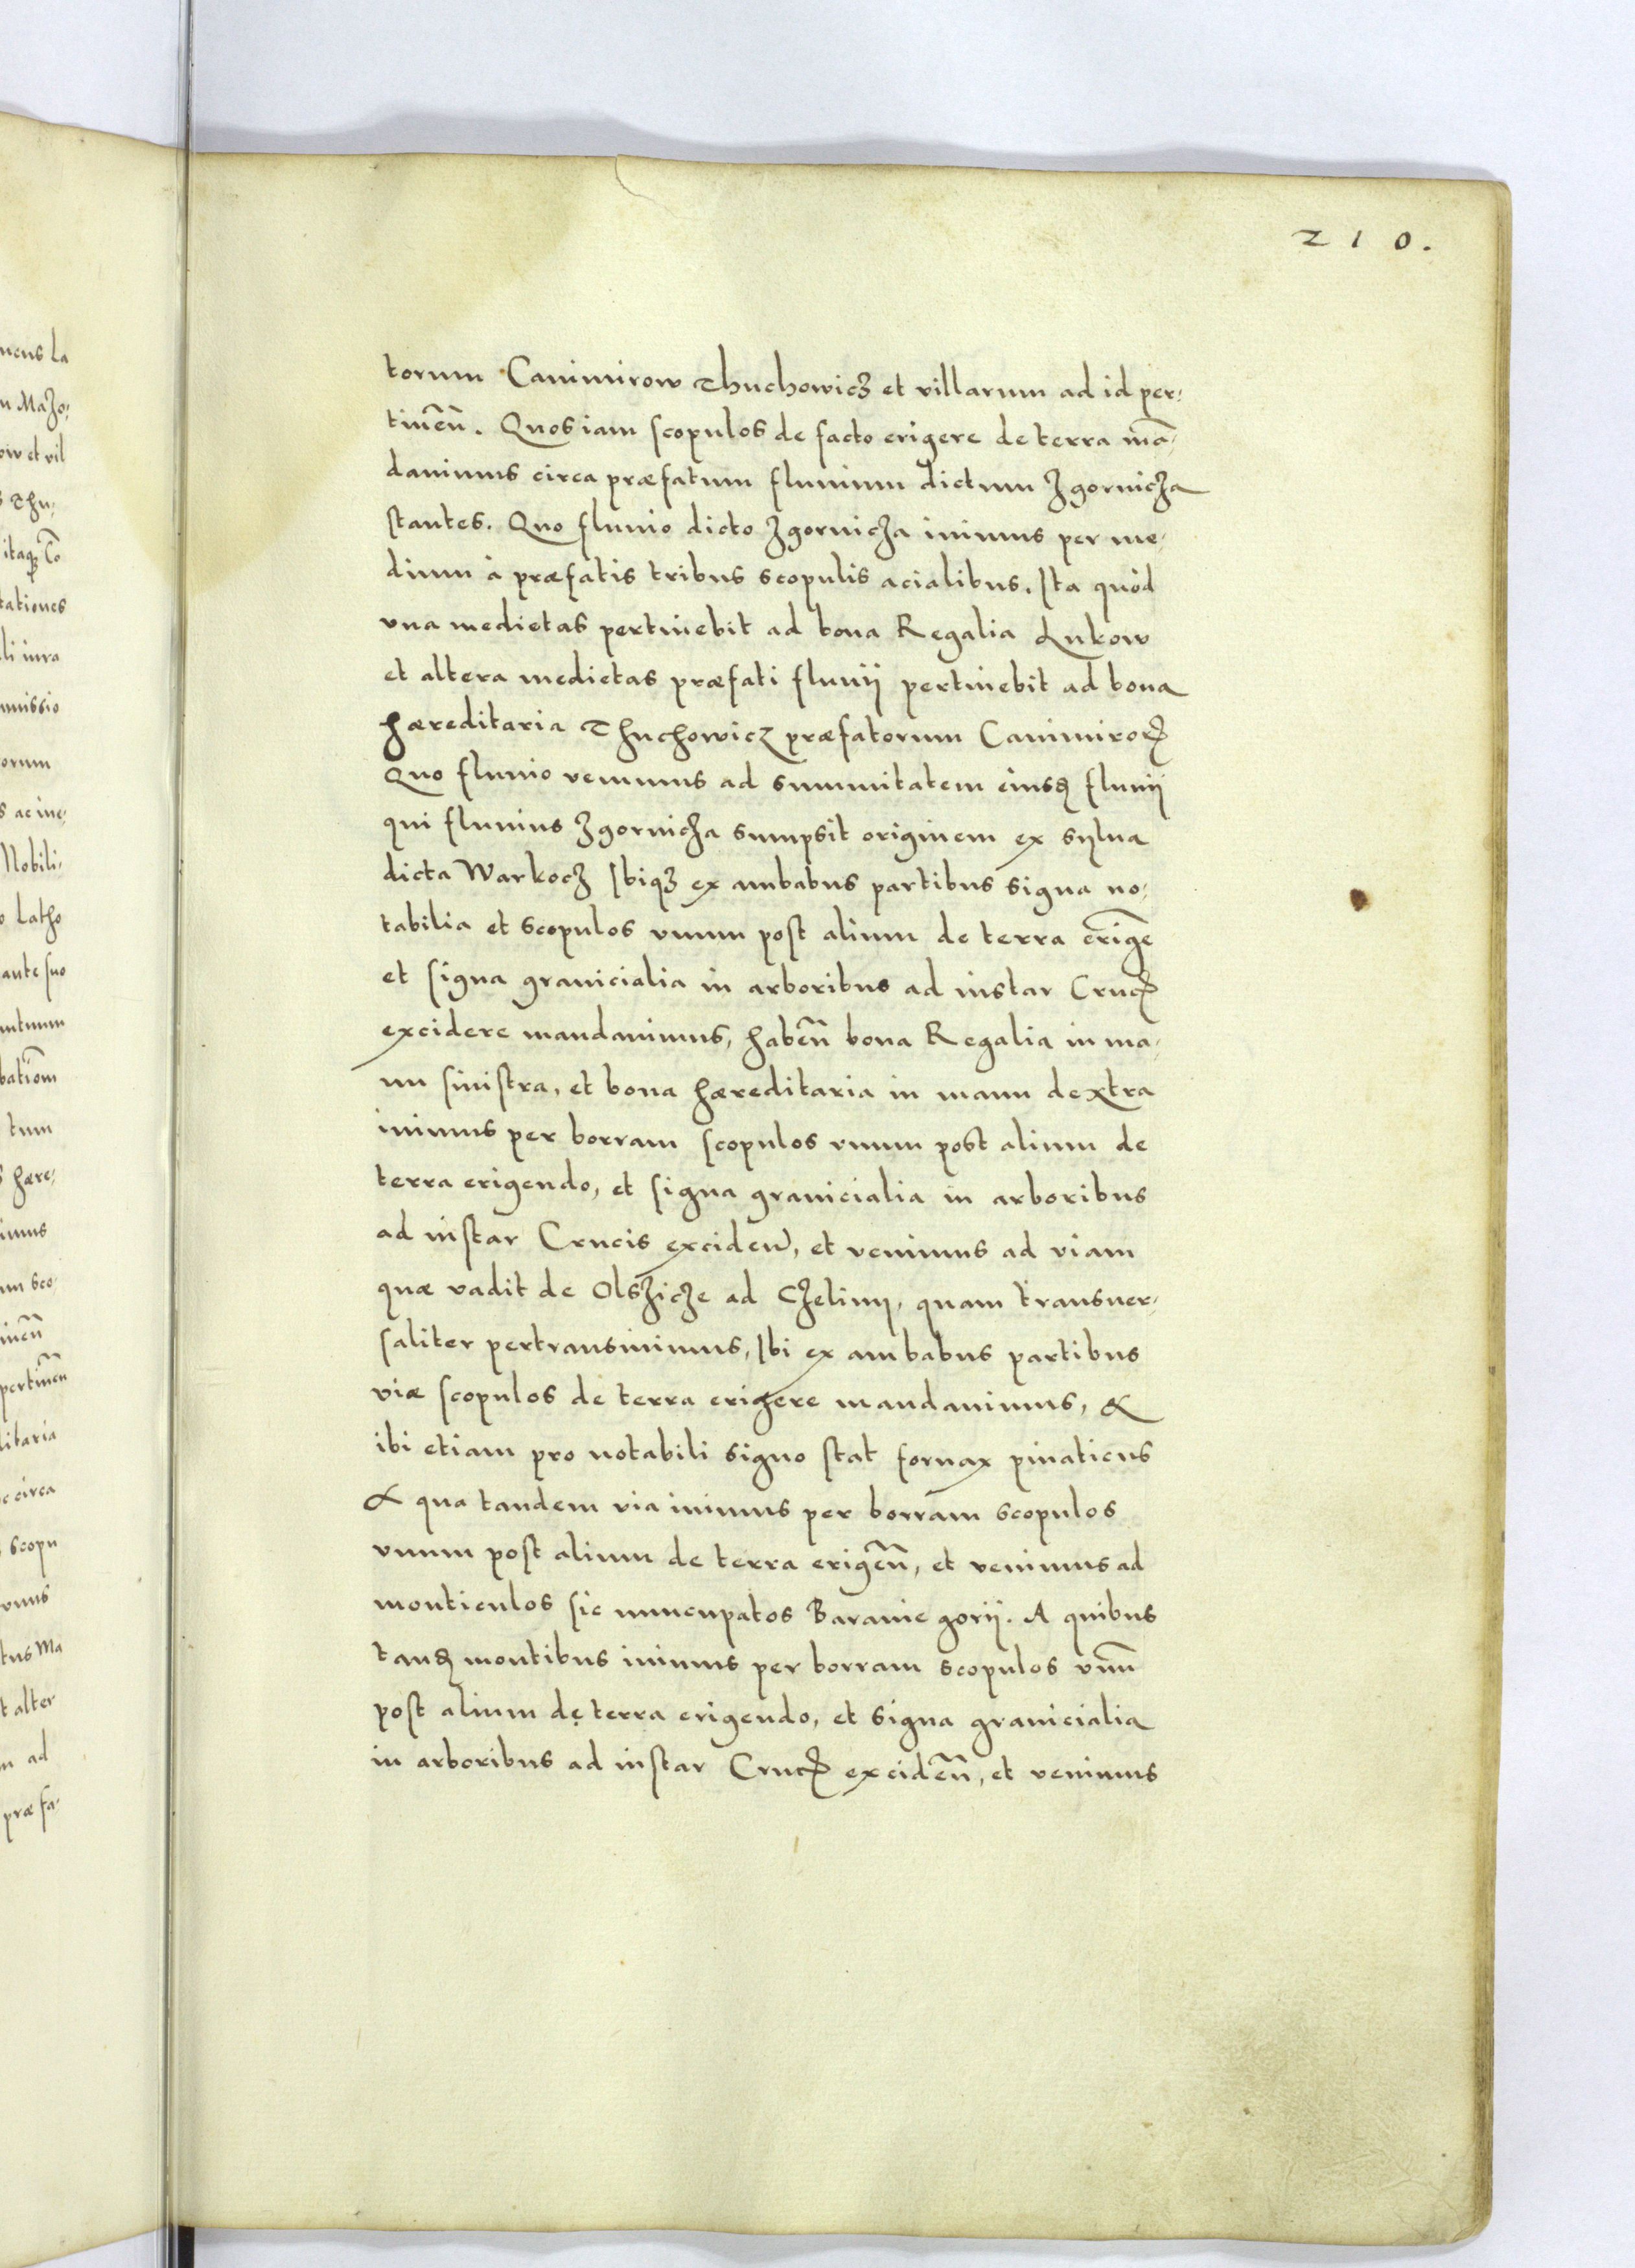 210.
torum Canimirow Thuchowicz et villarum ad id per-
tinēn̄. Quos iam scopulos de facto erigere de terra mā-
dauimus circa præfatum fluuium dictum Zgornicza
stantes. Quo fluuio dicto Zgornicza iuimus per me-
dium à præfatis tribus scopulis acialibus. Ita quòd
vna medietas pertinebit ad bona Regalia Lukow
et altera medietas præfati fluuij pertinebit ad bona
hæreditaria Thuchowicz præfatorum Canimiroꝝ
Quo fluuio venimus ad summitatem eiusꝗ fluuij
qui fluuius Zgornicza sumpsit originem ex sylua
dicta Warkocz Ibiqꝫ ex ambabus partibus signa no-
tabilia et scopulos vnum post alium de terra erigē
et signa granicialia in arboribus ad instar Crucꝭ
excidere mandauimus, habēn̄ bona Regalia in ma-
nu sinistra, et bona hæreditaria in manu dextra
iuimus per borram scopulos vnum post alium de
terra erigendo, et signa granicialia in arboribus
ad instar Crucis exciden̄, et venimus ad viam
quæ vadit de Olszicze ad Czeliny, quam transuer-
saliter pertransiuimus, Ibi ex ambabus partibus
viæ scopulos de terra erigere mandauimus, &
ibi etiam pro notabili signo stat fornax pinaticus
& qua tandem via iuimus per borram scopulos
vnum post alium de terra erigēn̄, et venimus ad
monticulos sic nuncupatos Baranie gorij. A quibus
tanꝗ montibus iuimus per borram scopulos vnū
post alium de terra erigendo, et signa granicialia
in arboribus ad instar Crucꝭ excidēn̄, et venimus